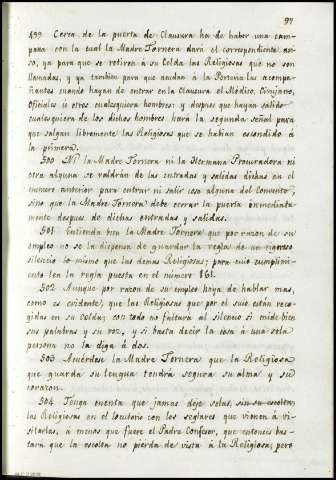 97
499 Cerca de la puerta de Clausura ha de haber una cam-
pana con la cual la Madre Tornera dará el correspondiente avi-
so, ya para que se retiren à su Celda las Religiosas que no son
llamadas, y ya tambien para que acudan à la Porteria las acompa-
ñantes cuando hayan de entrar en la Clausura el Médico, Cirujano,
Oficiales ú otros cualesquiera hombres: y despues que hayan salido
cualesquiera de los dichos hombres hará la segunda señal para
que salgan libremente las Religiosas que se habian escondido á
la primera.
500 Ni la Madre Tornera ni la Hermana Procuradora ni
otra alguna se valdrán de las entradas y salidas dichas en el
número anterior para entrar ni salir cosa alguna del Convento,
sino que la Madre Tornera debe cerrar la puerta inmediata-
mente despues de dichas entradas y salidas.
501 Entienda bien la Madre Tornera que por razon de su
empleo no se la dispensa de guardar la regla de un rigoroso
silencio lo mismo que las demas Religiosas; para cuio cumplimi-
ento lea la regla puesta en el número 161.
502 Aunque por razon de su empleo haya de hablar mas,
como es evidente, que las Religiosas que por el suio están reco-
gidas en su Celda; con todo no faltará al silencio si mide bien
sus palabras y su voz, y si basta decir la cosa à una sola
persona no la diga á dos.
503 Acuérdese la Madre Tornera que la Religiosa
que guarda su lengua tendrá segura su alma y su
corazon.
504 Tenga cuenta que jamas deje solas, sin su escolta,
las Religiosas en el locutorio con los seglares que vienen á vi-
sitarlas, á menos que fuere el Padre Confesor, que entonces bas-
tará que la escolta no pierda de vista á la Religiosa; pero